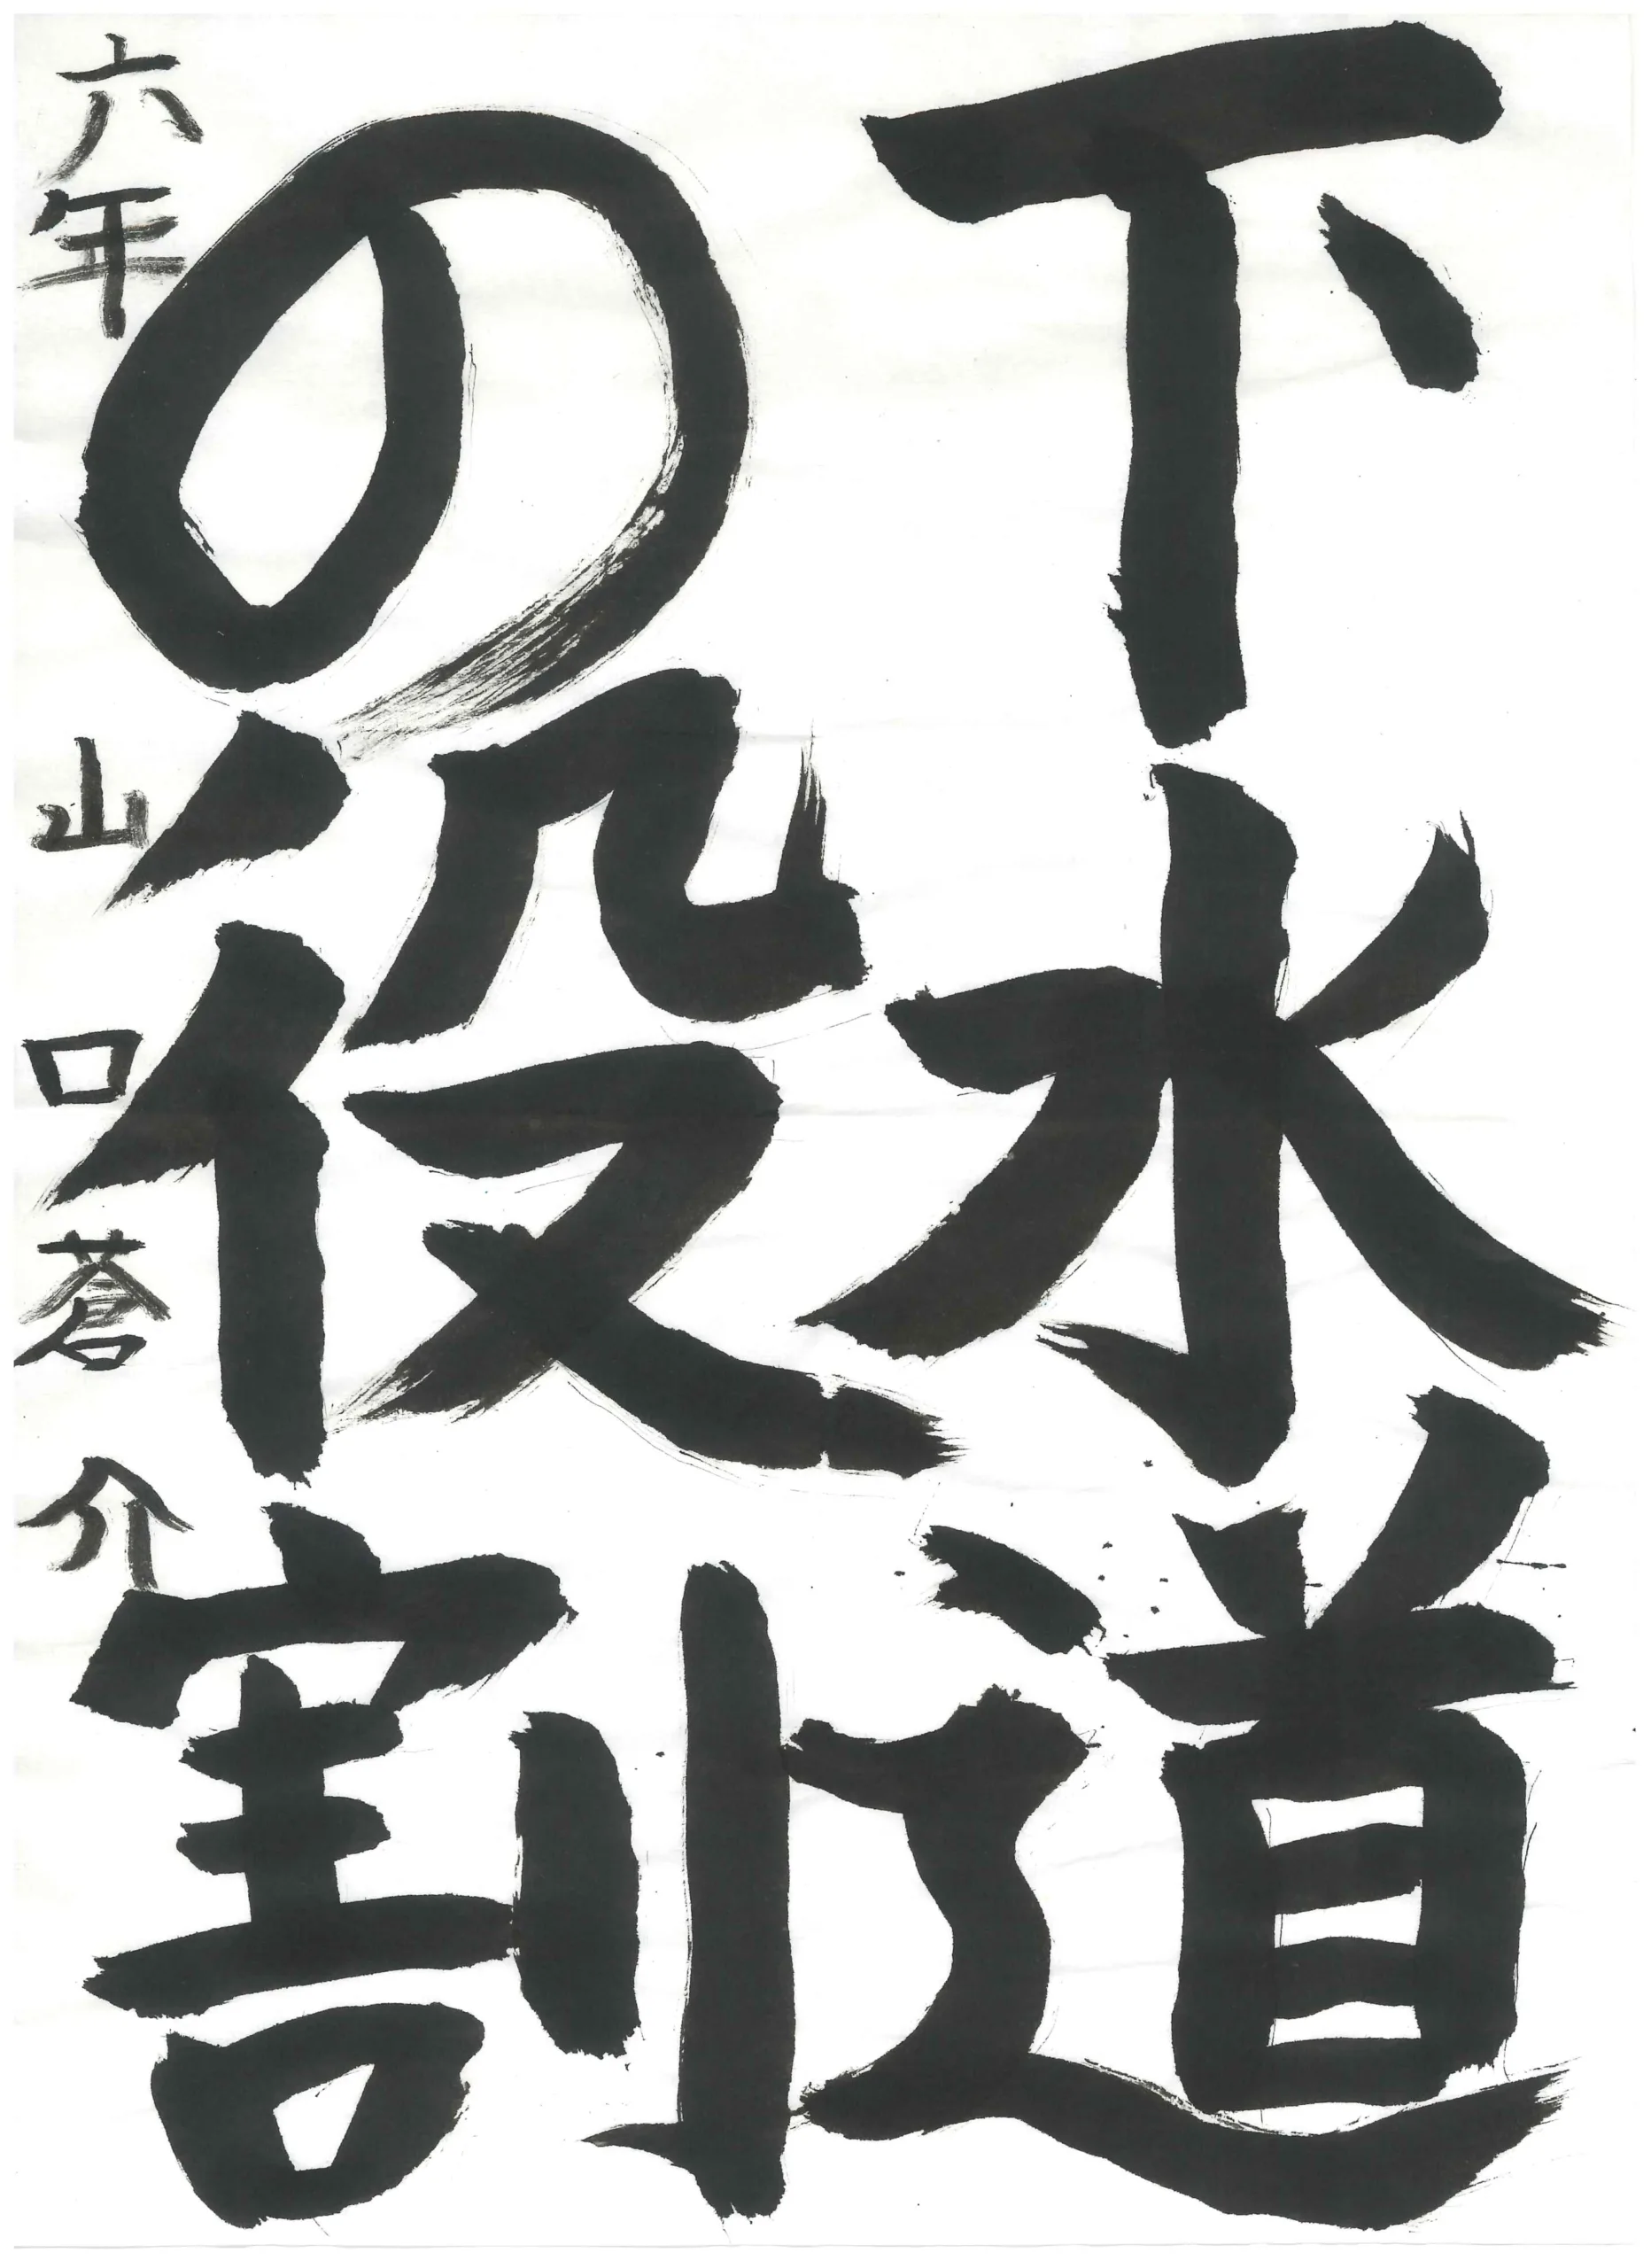 下水道
の役割
六年 山口蒼介